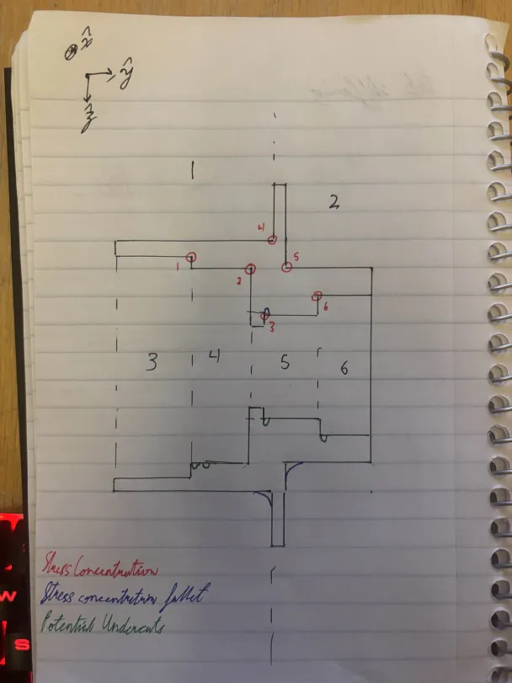 x̂
ŷ
ẑ
1
2
4
5
1
2
6
3
3
4
5
6
Stress Concentration
Stress concentration fillet
Potential Undercuts
W
S